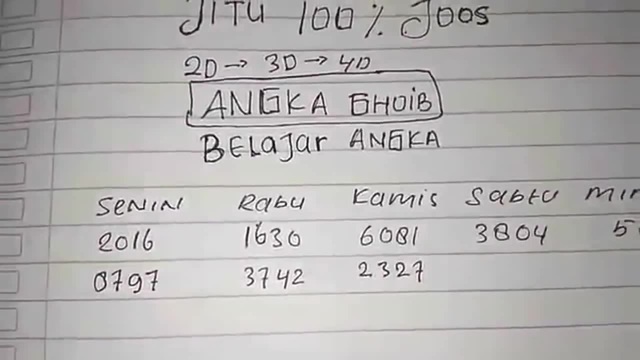 JITU 100% JOOS
2D → 3D → 4D
ANGKA GHOIB
BELAJAR ANGKA
SENIN Rabu Kamis Sabtu
2016 1630 6081 3804
0797 3742 2327